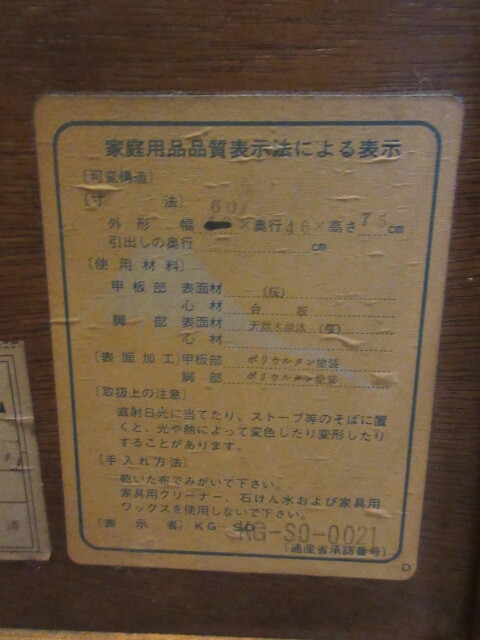 家庭用品品質表示法による表示
〔可変構造〕
〔寸法〕 60
外形 幅 × 奥行 46 × 高さ 75 cm
引出しの奥行 cm
〔使用材料〕
甲板部 表面材 (桜)
心材 合板
脚部 表面材 天然木単体 (桜)
心材
〔表面加工〕甲板部 ポリウルタン塗装
脚部 ポリウルタン塗装
〔取扱上の注意〕
直射日光に当てたり、ストーブ等のそばに置
くと、光や熱によって変色したり変形したり
することがあります。
〔手入れ方法〕
乾いた布でみがいて下さい。
家具用クリーナー、石けん水および家具用
ワックスを使用しないで下さい。
〔表示者〕KG-SO
KG-SO-0021
〔通産省承認番号〕
D
済